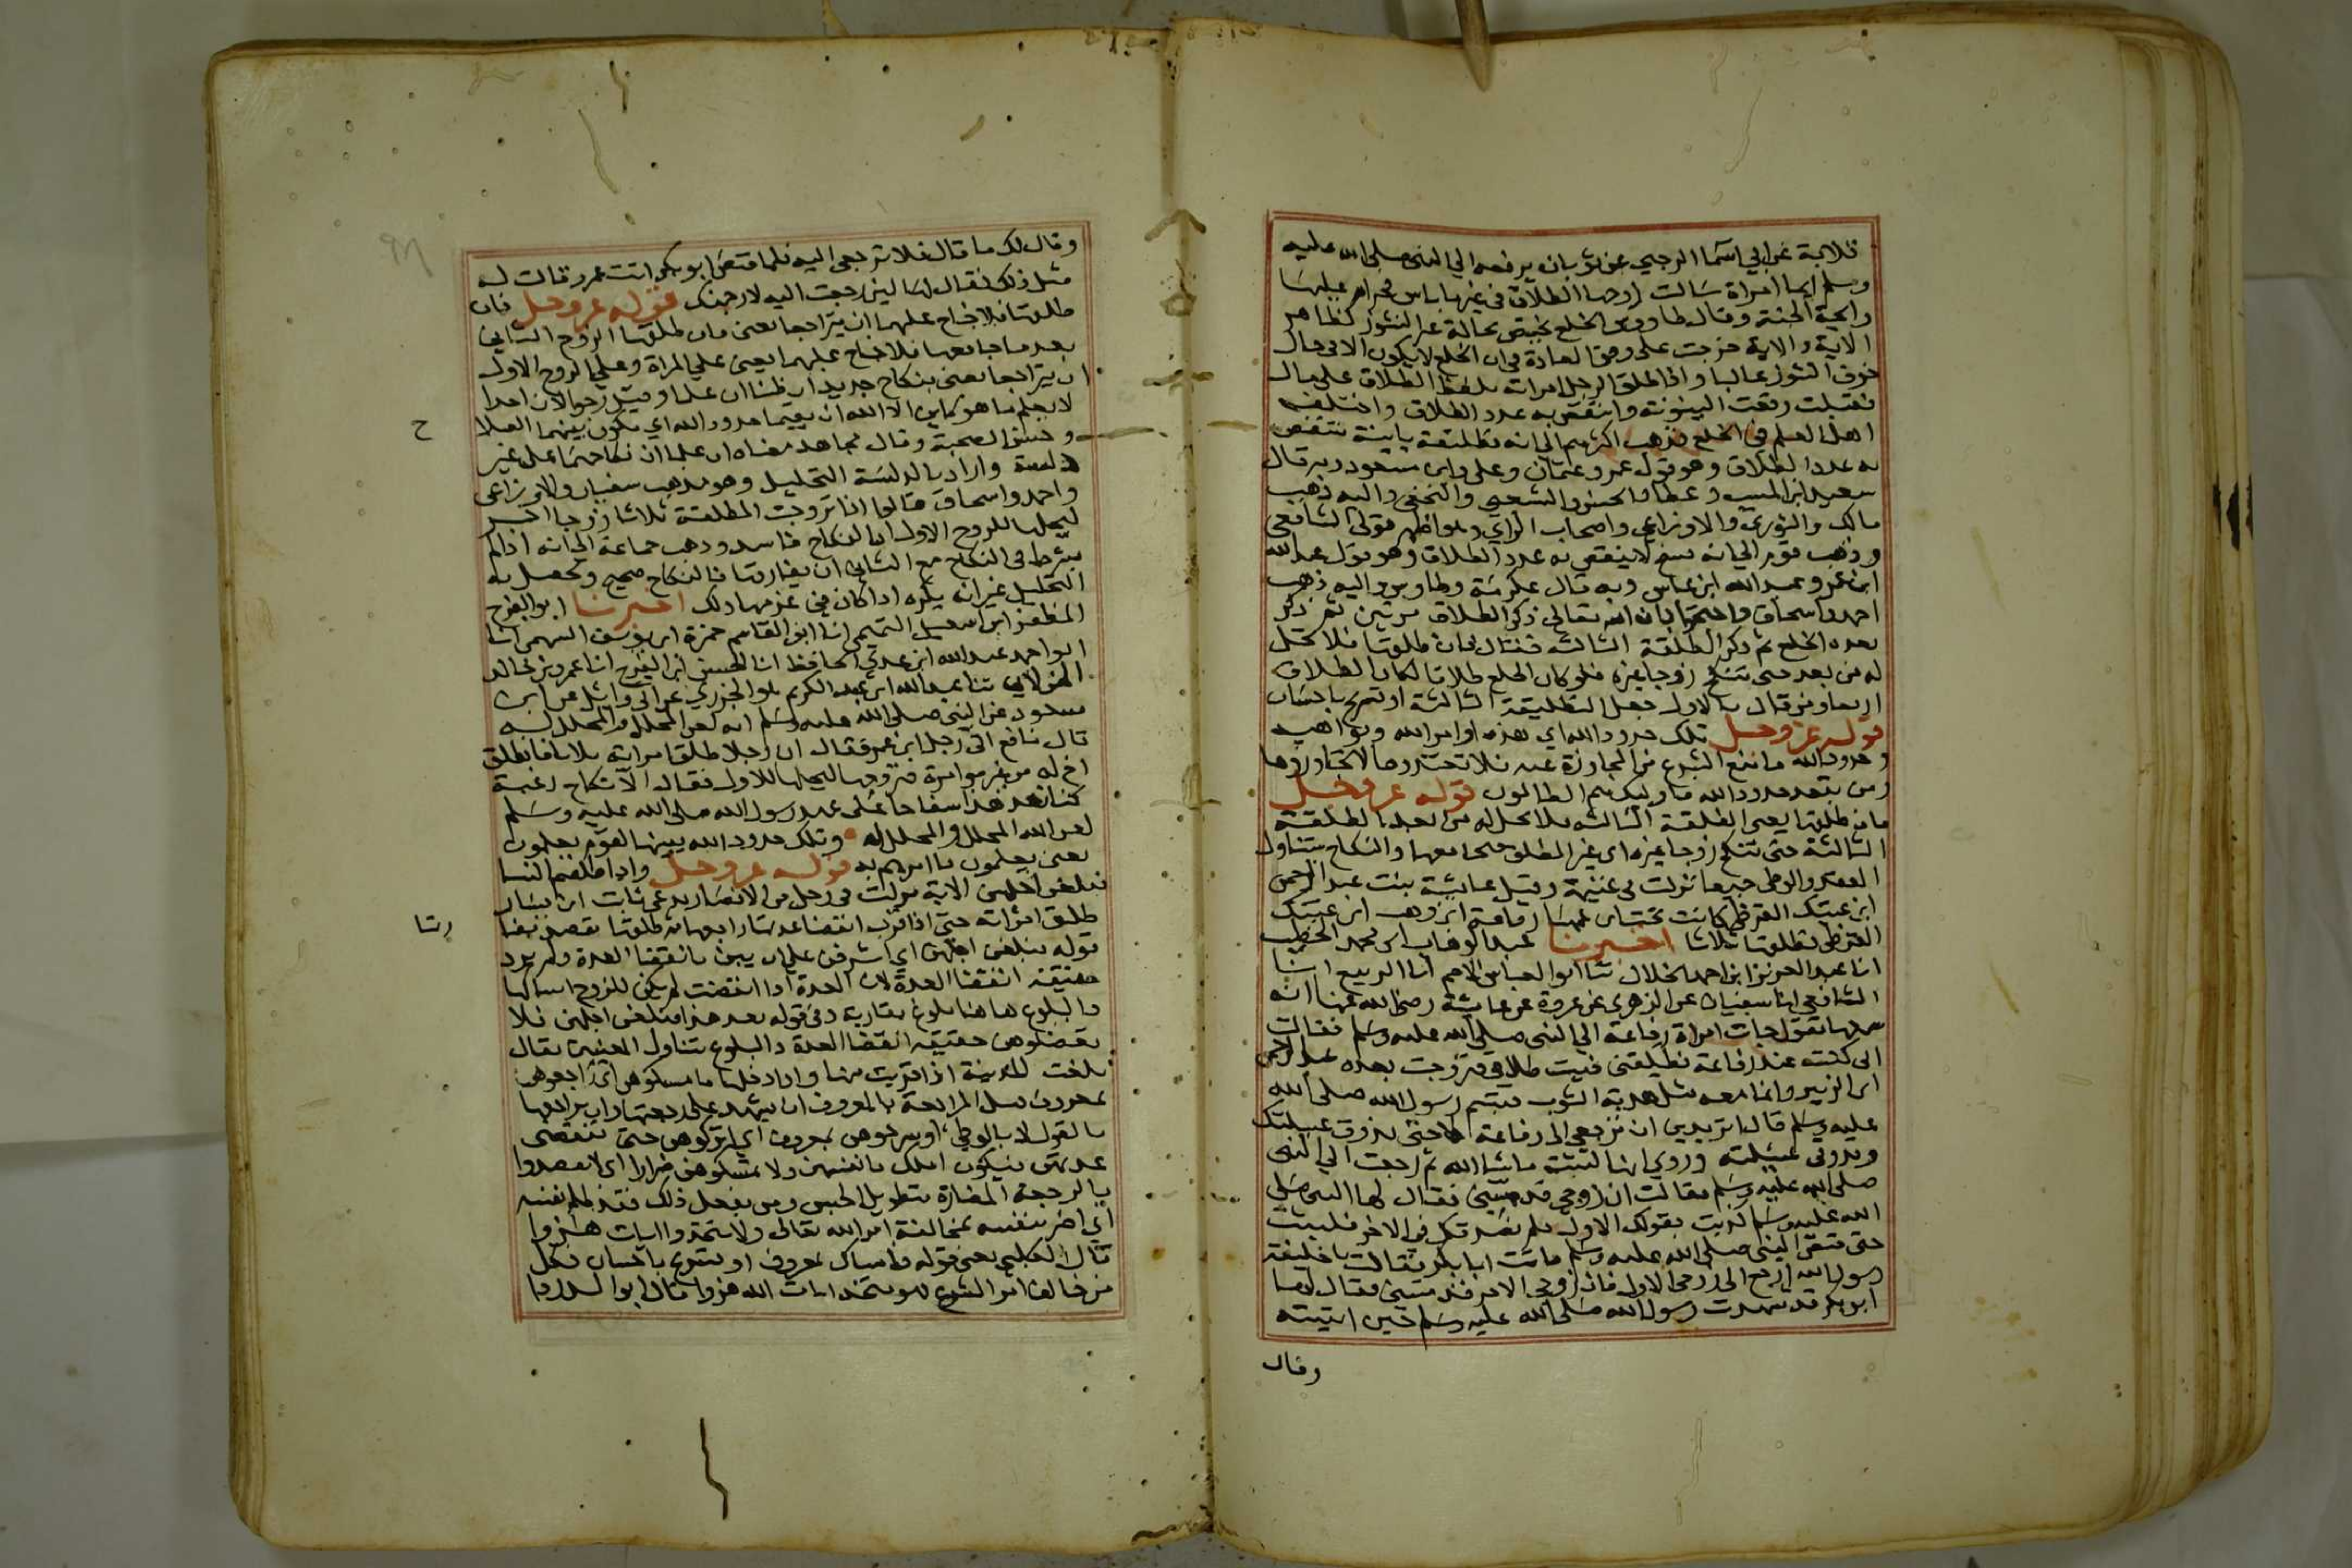 قلابة عن ابي اسما الرحبي عن ثوبان يرفعه الي النبي صلى الله عليه
وسلم ايما امراة سالت زوجها الطلاق في غير باس فحرام عليها
رايحة الجنة وقال طاووس الخلع يختص بحالة النشوز لظاهر
الاية والاية خرجت على وفق العادة في ان الخلع لا يكون الا في حال
خوف النشوز غالبا واذا طلق الرجل امراته بلفظ الطلاق على مال
فقبلت وقعت البينونة وانتقص به عدد الطلاق واختلف
اهل العلم في الخلع فذهب اكثرهم الي انه تطليقة باينة ينتقص
به عدد الطلاق وهو قول عمر وعثمان وعلى وابن مسعود وبه قال
سعيد ابن المسيب وعطا والحسن والشعبي والنخعي واليه ذهب
مالك والثوري والاوزاعي واصحاب الراي وهو اظهر قولي الشافعي
وذهب قوم الي انه فسخ لا ينتقص به عدد الطلاق وهو قول عبد الله
ابن عمر وعبد الله ابن عباس وبه قال عكرمة وطاوس واليه ذهب
احمد واسحاق واحتجوا بان الله تعالى ذكر الطلاق مرتين ثم ذكر
بعده الخلع ثم ذكر الطلقة الثالثة فقال فان طلقها فلا تحل
له من بعد حتى تنكح زوجا غيره فلو كان الخلع طلاقا لكان الطلاق
اربعا ومن قال بالاول جعل التطليقة الثالثة او تسريح باحسان
قوله عز وجل تلك حدود الله اي هذه اوامر الله ونواهيه
وحدود الله ما منع الشرع من المجاوزة عنه فلا تعتدوها لا تجاوزوها
ومن يتعد حدود الله فاوليك هم الظالمون قوله عز وجل
فان طلقها يعني الطلقة الثالثة فلا تحل له من بعد الطلقة
الثالثة حتى تنكح زوجا غيره اي غير المطلق فيجامعها والنكاح يتناول
العقد والوطي جميعا نزلت في تميمة وقيل عايشة بنت عبد الرحمن
ابن عتيك القرظي كانت تحت ابن عمها رفاعة ابن وهب ابن عتيك
القرظي فطلقها ثلاثا اخبرنا عبد الوهاب ابن محمد الخطيب
انا عبد العزيز ابن احمد الخلال ثنا ابو العباس الاصم انا الربيع انا
الشافعي انا سفيان عن الزهري عن عروة عن عايشة رضي الله عنها انه
سمعها تقول جات امراة رفاعة الي النبي صلى الله عليه وسلم فقالت
اني كنت عند رفاعة فطلقني فبت طلاقي فتزوجت بعده عبد الرحمن
ابن الزبير وانما معه مثل هدبة الثوب فتبسم رسول الله صلى الله
عليه وسلم قال اتريدين ان ترجعي الى رفاعة لا حتى يذوق عسيلتك
وتذوقي عسيلته وروي انها لبثت ما شا الله ثم رجعت الي النبي
صلى الله عليه وسلم فقالت ان زوجي قد مسني فقال لها النبي صلى
الله عليه وسلم كذبت بقولك الاول فلم نصدقك في الاخر فلبثت
حتى قبض النبي صلى الله عليه وسلم فاتت ابا بكر فقالت يا خليفة
رسول الله ارجع الى زوجي الاول فان زوجي الاخر قد مسني فقال لها
ابو بكر قد شهدت رسول الله صلى الله عليه وسلم حين اتيته
وقال
وقال لك ما قال فلا ترجعي اليه فلما قبض ابو بكر اتت عمر وقالت له
مثل ذلك فقال لها لين رجعت اليه لارجمنك قوله عز وجل فان
طلقها فلا جناح عليهما ان يتراجعا يعني فان طلقها الزوج الثاني
بعد ما جامعها فلا جناح عليهما يعني علي المراة وعلي الزوج الاول
ان يتراجعا يعني بنكاح جديد ان ظنا ان علما وقيل رجوا لان احدا
لا يعلم ما هو كاين الا الله ان يقيما حدود الله اي يكون بينهما الصلاح
وحسن الصحبة وقال مجاهد معناه ان علما ان نكاحهما على غير
دلسة واراد بالدلسة التحليل وهو مذهب سفيان والاوزاعي
واحمد واسحاق قالوا اذا تزوجت المطلقة ثلاثا زوجا اخر
ليحلها للزوج الاول ان النكاح فاسد وذهب جماعة الي انه اذا لم
يشرط في النكاح مع الثاني ان يفارقها فالنكاح صحيح وتحصل به
التحليل غير انه يكره اذا كان في عزمها ذلك اخبرنا ابو الفرج
المظفر ابن اسمعيل التميمي انا ابو القاسم حمزة ابن يوسف السهمي انا
ابو احمد عبد الله ابن عدي الحافظ انا الحسن ابن الفرج انا عمرو بن خالد
الحراني ثنا عبيد الله ابن عبد الكريم هو الجزري عن ابي واثل عن ابن
مسعود عن النبي صلى الله عليه وسلم انه لعن المحلل والمحلل له
قال نافع اتى رجل ابن عمر فقال ان رجلا طلق امراته ثلاثا فانطلق
اخ له من غير موامرة فتزوجها ليحلها للاول فقال لا الا نكاح رغبة
كنا نعد هذا سفاحا على عهد رسول الله صلى الله عليه وسلم
لعن الله المحلل والمحلل له وتلك حدود الله يبينها لقوم يعلمون
يعني يعلمون ما امرهم به قوله عز وجل واذا طلقتم النسا
فبلغن اجلهن الاية نزلت في رجل من الانصار يدعي ثابت ابن يسار
طلق امراته حتى اذا قرب انقضا عدتها راجعها ثم طلقها يقصد
قوله فبلغن اجلهن اي اشرفن على ان يبن بانقضا العدة ولم يرد
حقيقة انقضا العدة لان العدة اذا انقضت لم يكن للزوج امساكها
والبلوغ هاهنا بلوغ مقاربة وفي قوله بعد هذا فبلغن اجلهن فلا
تعضلوهن حقيقة انقضا العدة والبلوغ يتناول المعنيين يقال
بلغت المدينة اذا قربت منها واذا دخلتها فامسكوهن اي راجعوهن
بمعروف قيل المراجعة بالمعروف ان يشهد على رجعتها وان يراجعها
بالقول لا بالوطي او سرحوهن بمعروف اي اتركوهن حتى تنقضي
عدتهن فيكون املك بانفسهن ولا تمسكوهن ضرارا اي لا تقصدوا
بالرجعة المضارة بتطويل الحبس ومن يفعل ذلك فقد ظلم نفسه
اي اضر بنفسه بمخالفة امر الله تعالى ولا تتخذوا ايات هزوا
قال الكلبي يعني قوله فامساك بمعروف او تسريح باحسان فكل
من خالف امر الشرع فهو متخذ ايات الله هزوا قال ابو الدردا